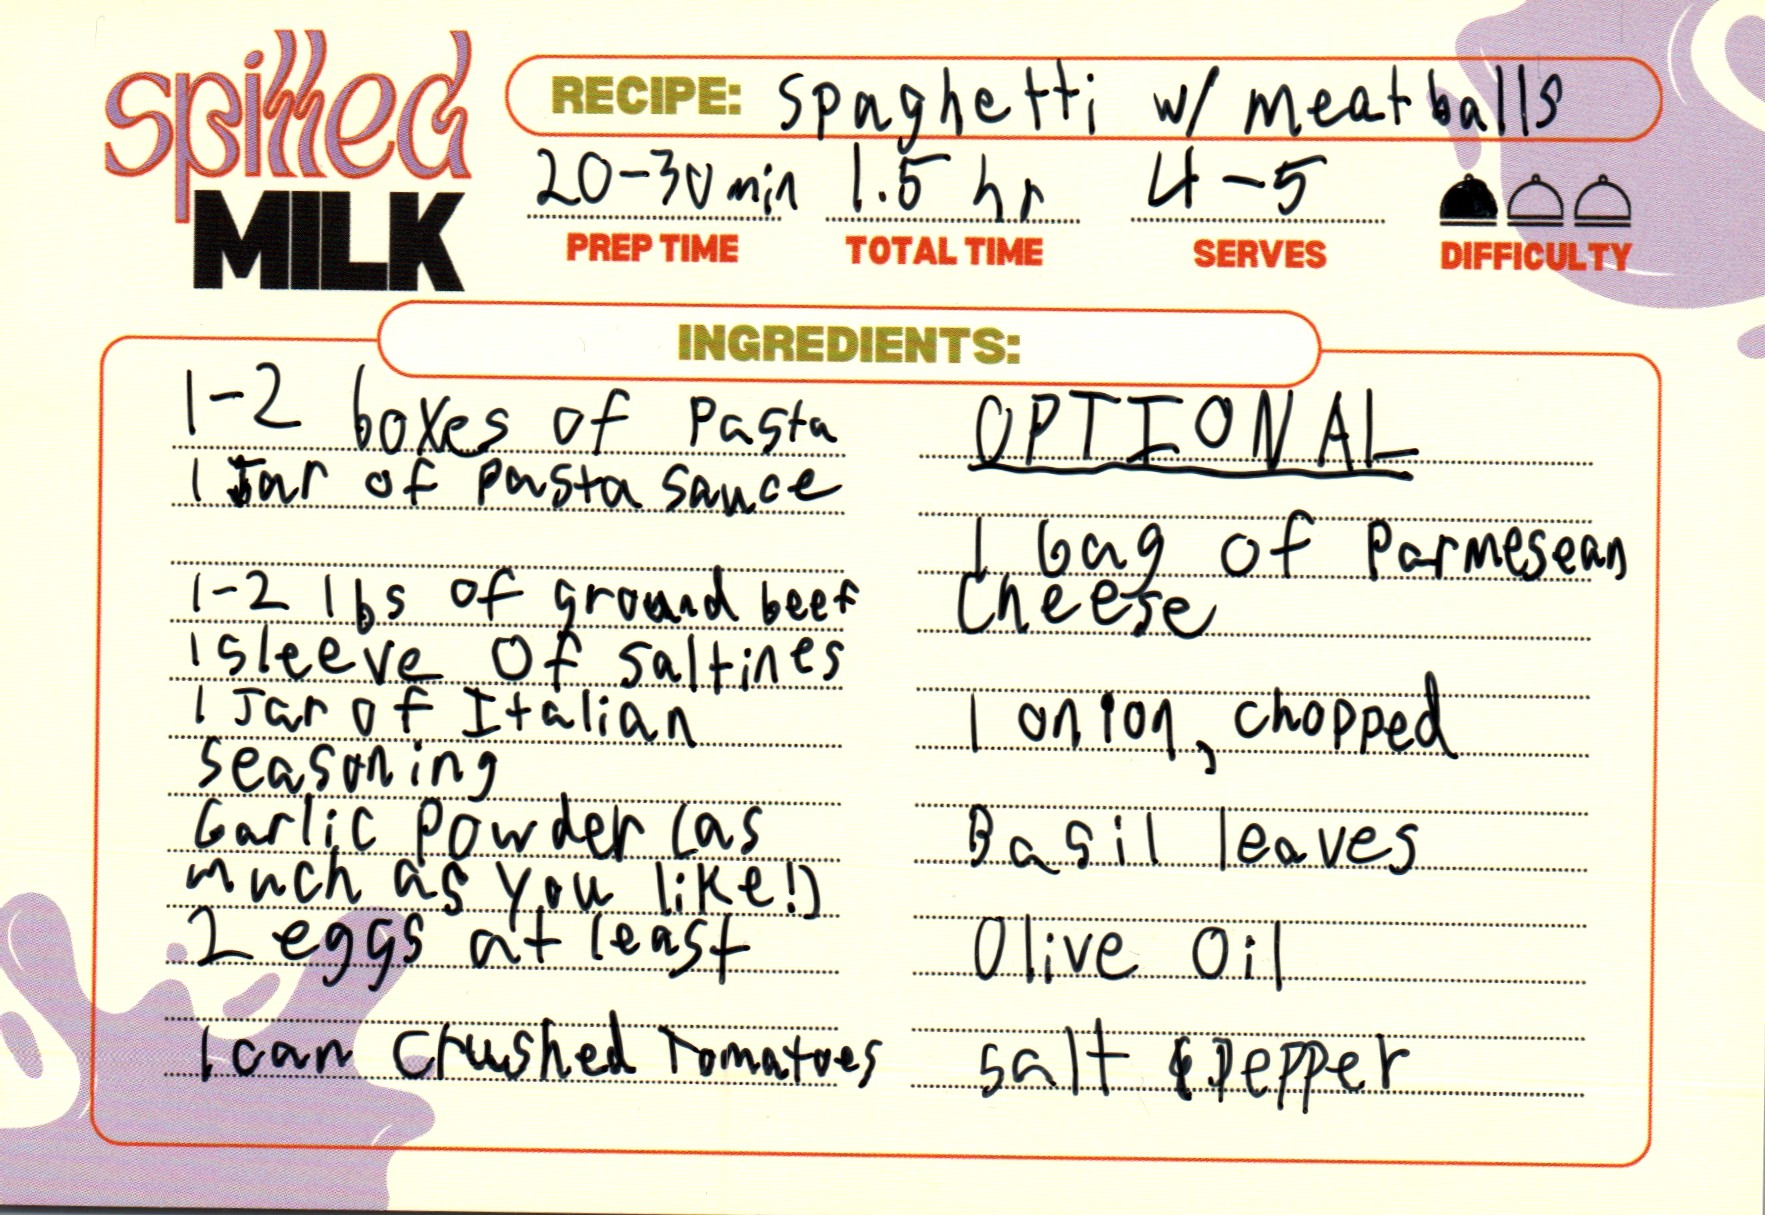 spilled
MILK
RECIPE: spaghetti w/ meatballs
20-30 min 1.5 hr 4-5
PREP TIME TOTAL TIME SERVES DIFFICULTY
INGREDIENTS:
1-2 boxes of Pasta
1 Jar of pasta sauce
1-2 lbs of ground beef
1 sleeve of saltines
1 Jar of Italian
seasoning
Garlic Powder (as
much as you like!)
2 eggs at least
1 can crushed Tomatoes
OPTIONAL
1 bag of Parmesean
Cheese
1 onion, chopped
Basil leaves
Olive Oil
salt & pepper